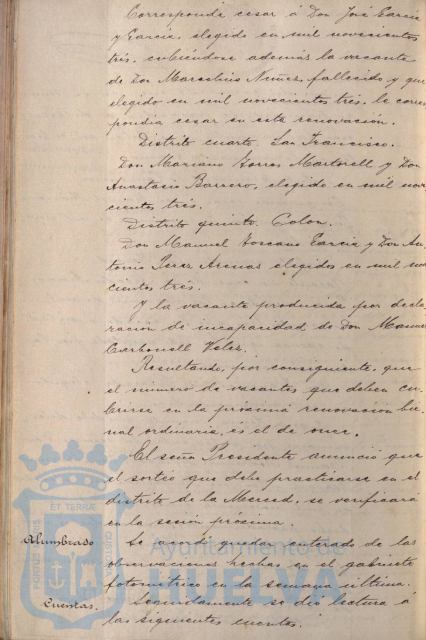 Corresponde cesar á Don José García
y García, elegido en mil novecientos
tres, cubriéndose además la vacante
de Don Marcelino Nuñez, fallecido y que
elegido en mil novecientos tres, le corres
pondia cesar en esta renovación.
Distrito cuarto. San Francisco.
Don Mariano Torres Martorell y Don
Anastasio Barrero, elegido en mil nove
cientos tres.
Distrito quinto. Colon.
Don Manuel Toscano García y Don An
tonio Perez Arenas elegidos en mil no
cientos tres.
Y la vacante producida por decla
ración de incapacidad de Don Manuel
Carbonell Velez.
Resultando, por consiguiente, que
el número de vacantes que deben cu
brirse en la próxima renovacion bie
nal ordinaria, es el de once.
El señor Presidente anunció que
el sorteo que debe practicarse en el
distrito de la Merced, se verificará
en la sesión próxima.
Alumbrado Se acordó quedar enterado de las
observaciones hechas en el gabinete
fotométrico en la semana última.
Cuentas. Seguidamente se dió lectura á
las siguientes cuentas.
ET TERRAE
Ayuntamiento de
HUELVA